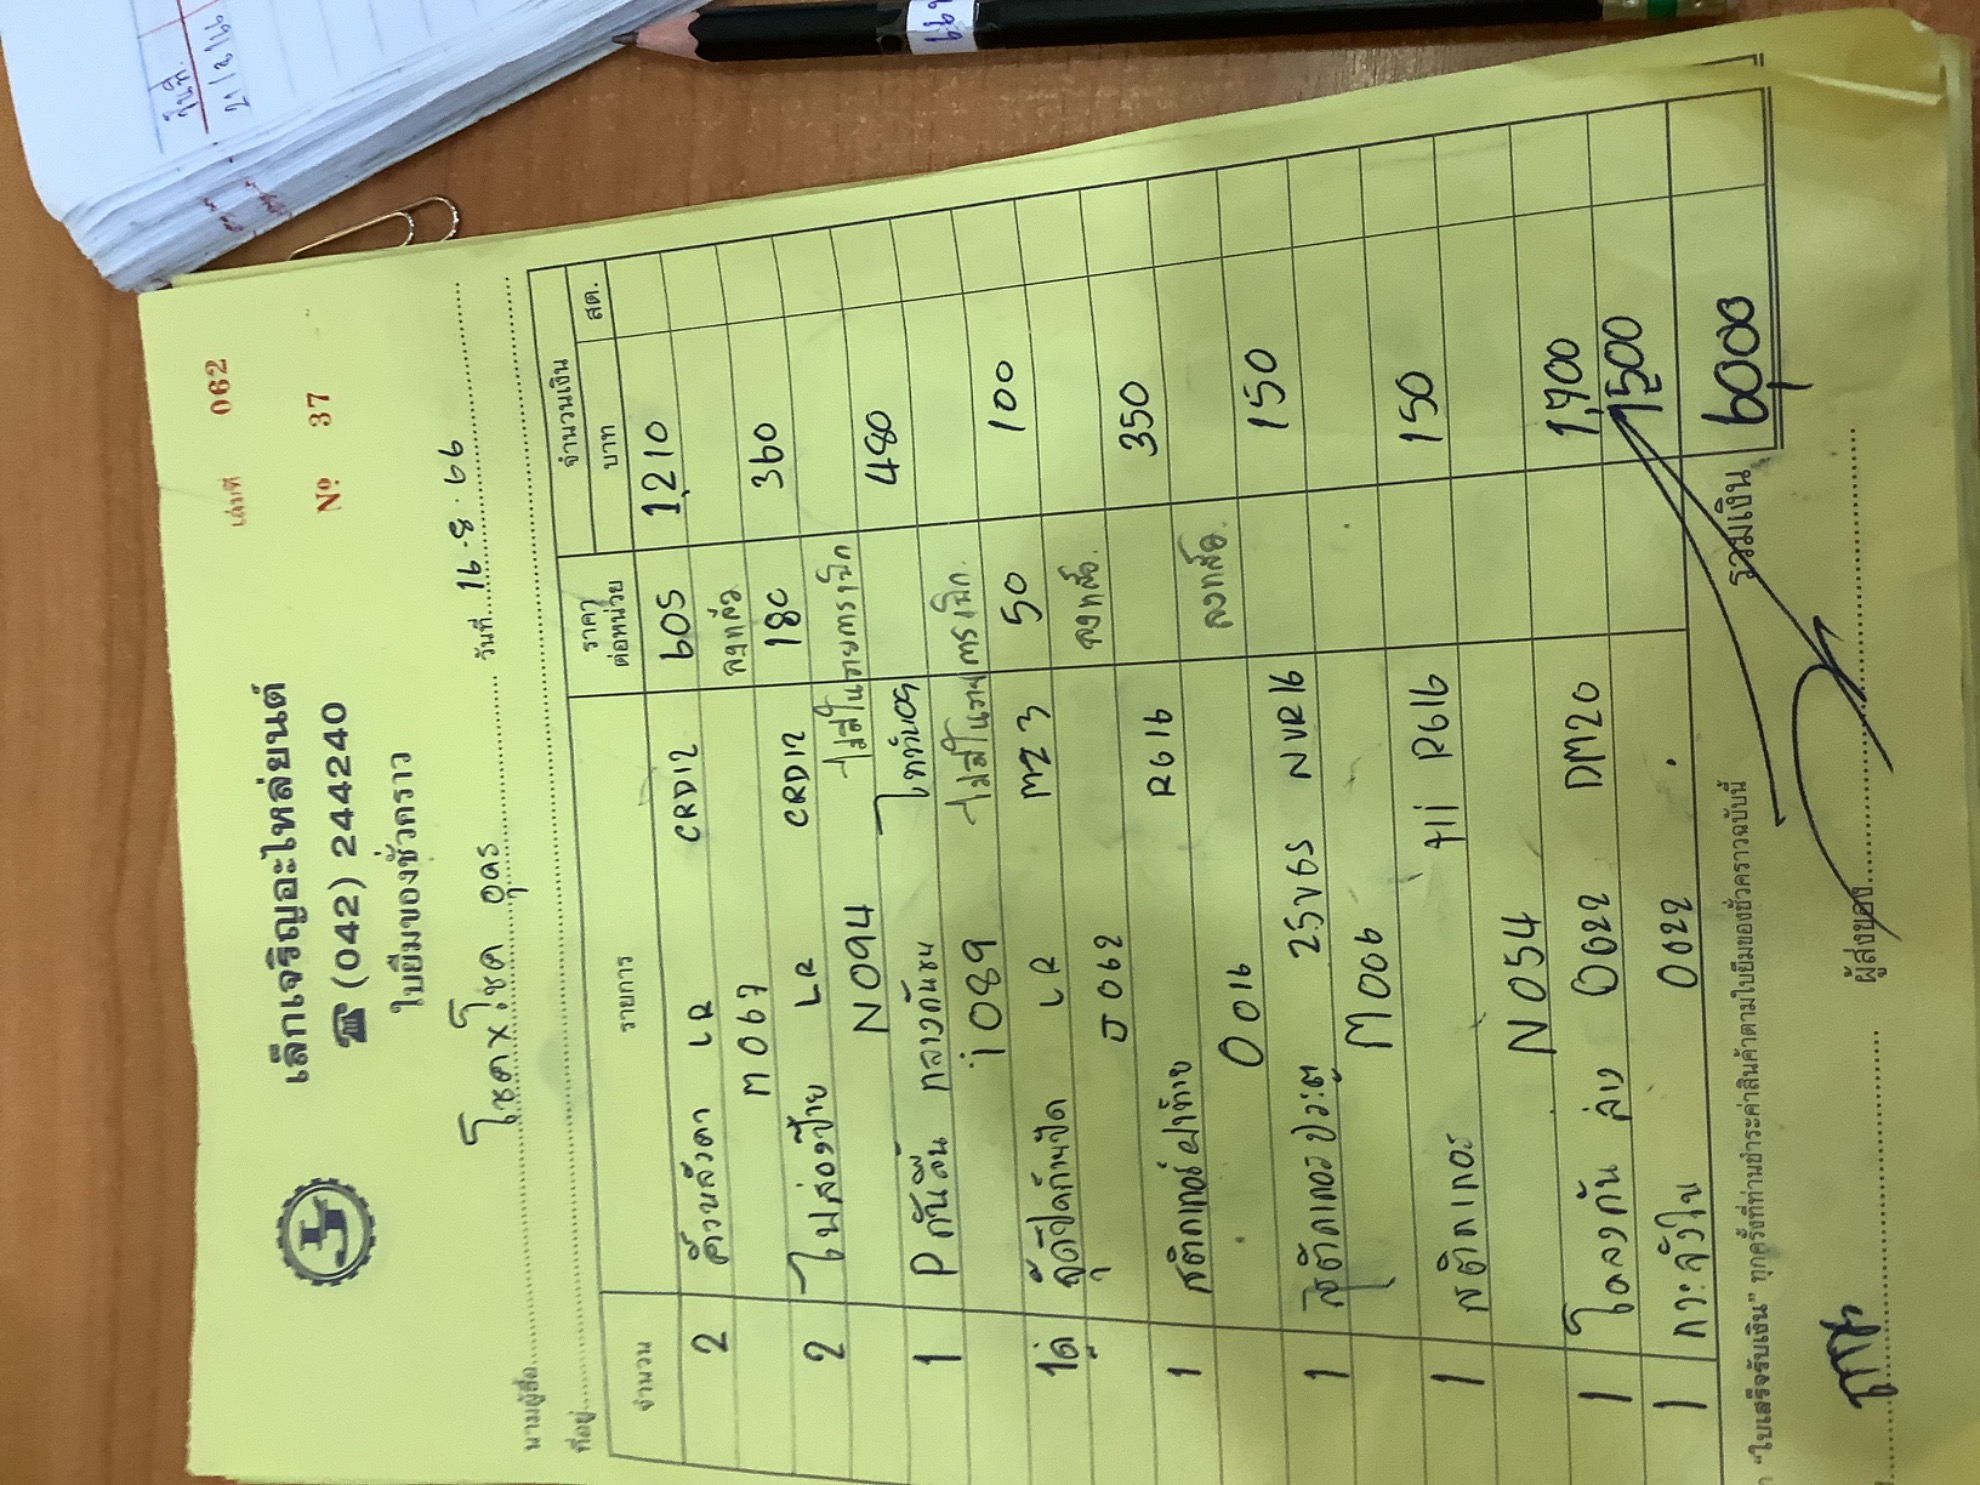 เล่มที่ 062
เล็กเจริญอะไหล่ยนต์
☎ (042) 244240
№ 37
ใบยืมของชั่วคราว
นามผู้ซื้อ โชคxโชค อุดร วันที่ 16.8.66
ที่อยู่
จำนวน รายการ ราคาต่อหน่วย จำนวนเงิน
บาท สต.
2 คิ้วหลังคา LR CRD12 605 1,210
M067 ลงแล้ว
2 ไฟส่องป้าย LR CRD12 180 360
N094 ไม่มีในรายการเบิก
1 P กันลื่น กลางกันชน 480
i 089 ไม่มีในรายการเบิก.
1คู่ LR MZ3 50 100
J 062
1 สติกเกอร์ฝาท้าย R616 350
0016
1 สติกเกอร์ประตู 25VGS NVR16 150
M006
1 สติกเกอร์ R616 150
N054
1 โคลงกัน ล่าง 0022 DM20 1,700
1 0022 1,500
รวมเงิน 6,000
"ใบเสร็จรับเงิน" ทุกครั้งที่ท่านชำระค่าสินค้าตามใบยืมของชั่วคราวฉบับนี้
ผู้ส่งของ
วันที่.